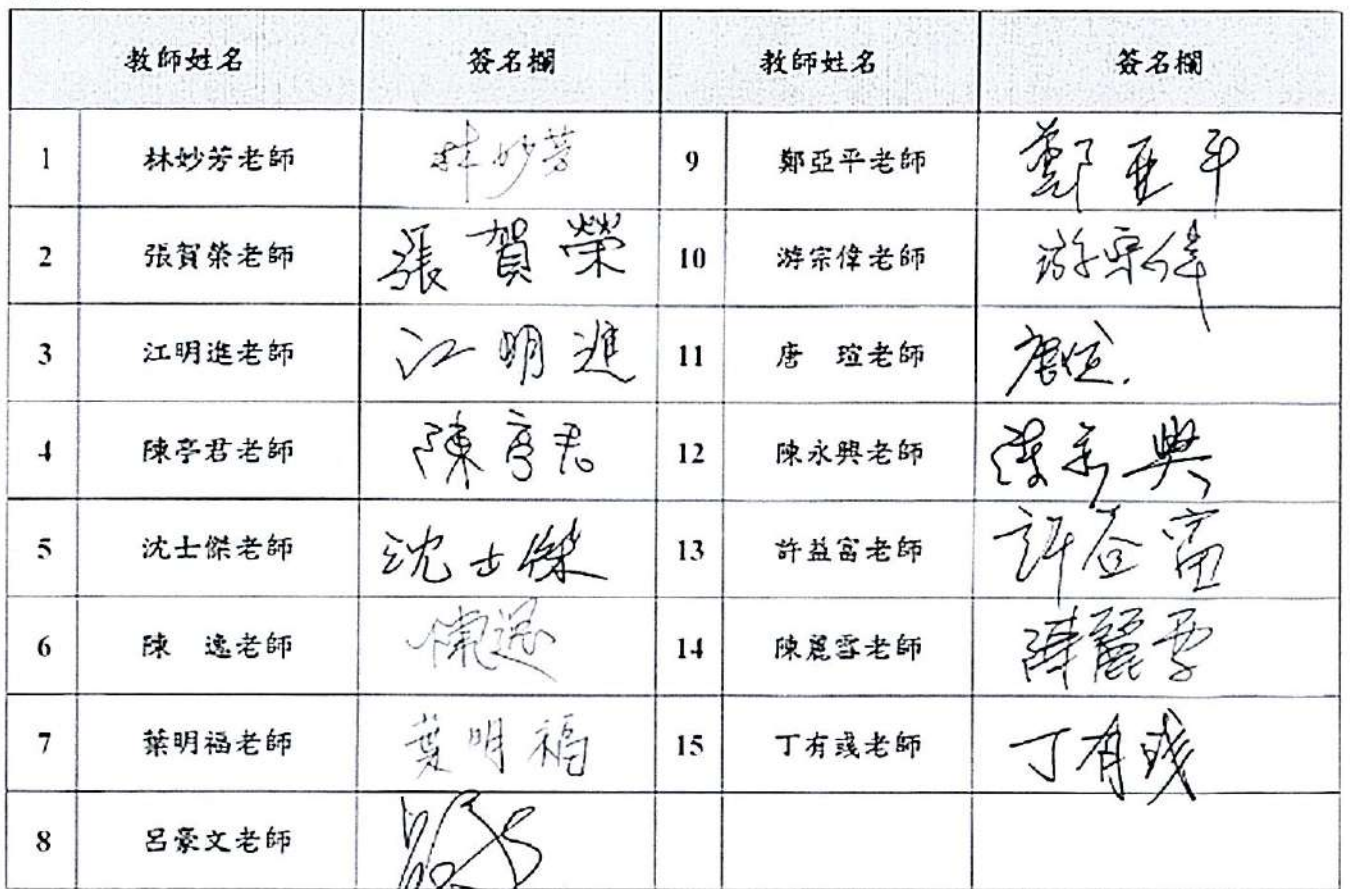 教師姓名 簽名欄 教師姓名 簽名欄
1 林妙芳老師 林妙芳 9 鄭亞平老師 鄭亞平
2 張賀榮老師 張賀榮 10 游宗偉老師 游宗偉
3 江明進老師 江明進 11 唐 瑄老師 唐瑄.
4 陳亭君老師 陳亭君 12 陳永興老師 陳永興
5 沈士傑老師 沈士傑 13 許益富老師 許益富
6 陳 逸老師 陳逸 14 陳麗雪老師 陳麗雪
7 葉明福老師 葉明福 15 丁有彧老師 丁有彧
8 呂豪文老師